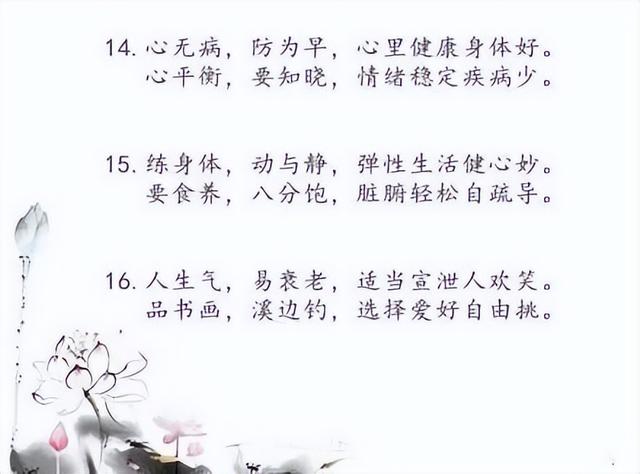 14. 心无病，防为早，心里健康身体好。
心平衡，要知晓，情绪稳定疾病少。
15. 练身体，动与静，弹性生活健心妙。
要食养，八分饱，脏腑轻松自疏导。
16. 人生气，易衰老，适当宣泄人欢笑。
品书画，溪边钓，选择爱好自由挑。